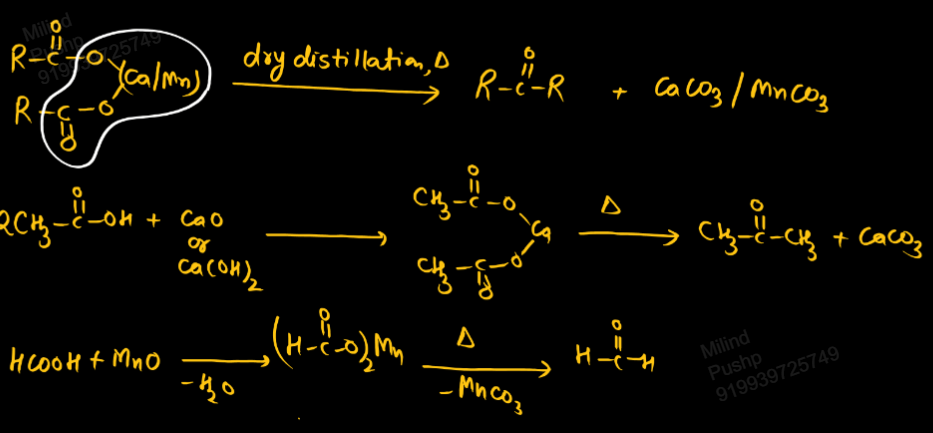 Milind
Pushp
919939725749
R-C(=O)-O
(Ca/Mn) dry distillation, Δ → R-C(=O)-R + CaCO3/MnCO3
R-C(=O)-O
2CH3-C(=O)-OH + CaO or Ca(OH)2 → CH3-C(=O)-O Ca CH3-C(=O)-O Δ → CH3-C(=O)-CH3 + CaCO3
HCOOH + MnO → -H2O (H-C(=O)-O)2Mn Δ → -MnCO3 H-C(=O)-H
Milind
Pushp
919939725749